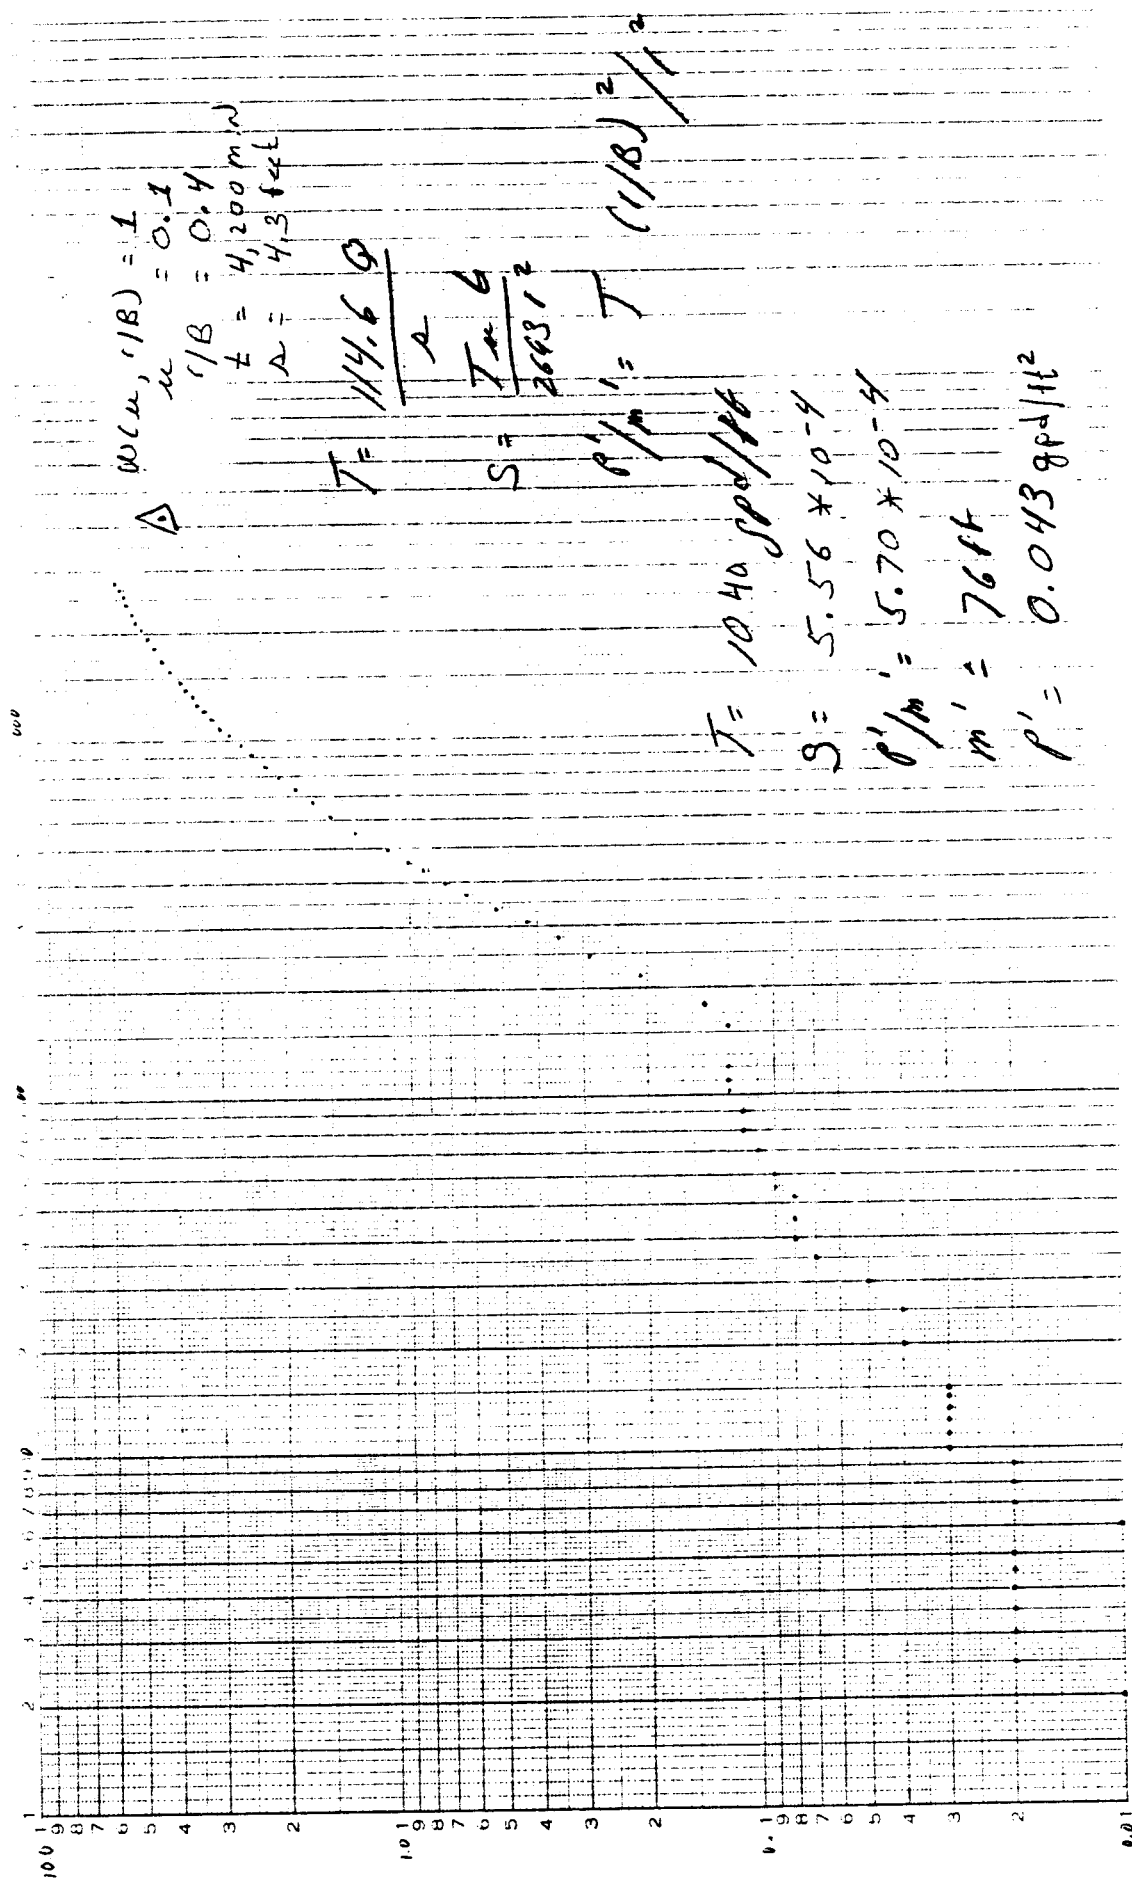 W(u, r/B) = 1
u = 0.1
r/B = 0.4
t = 4,200 min
s = 4.3 feet
T = 114.6 Q
s
S = T u t
2693 r²
P'/m' = T (r/B)² / r²
T = 1040 gpd/ft
S = 5.56 * 10-4
P'/m' = 5.70 * 10-4
m' = 76 ft
P' = 0.043 gpd/ft²
10.0
1
9
8
7
6
5
4
3
2
1.0
1
9
8
7
6
5
4
3
2
0.
1
9
8
7
6
5
4
3
2
0.01
1
2
3
4
5
6
7
8